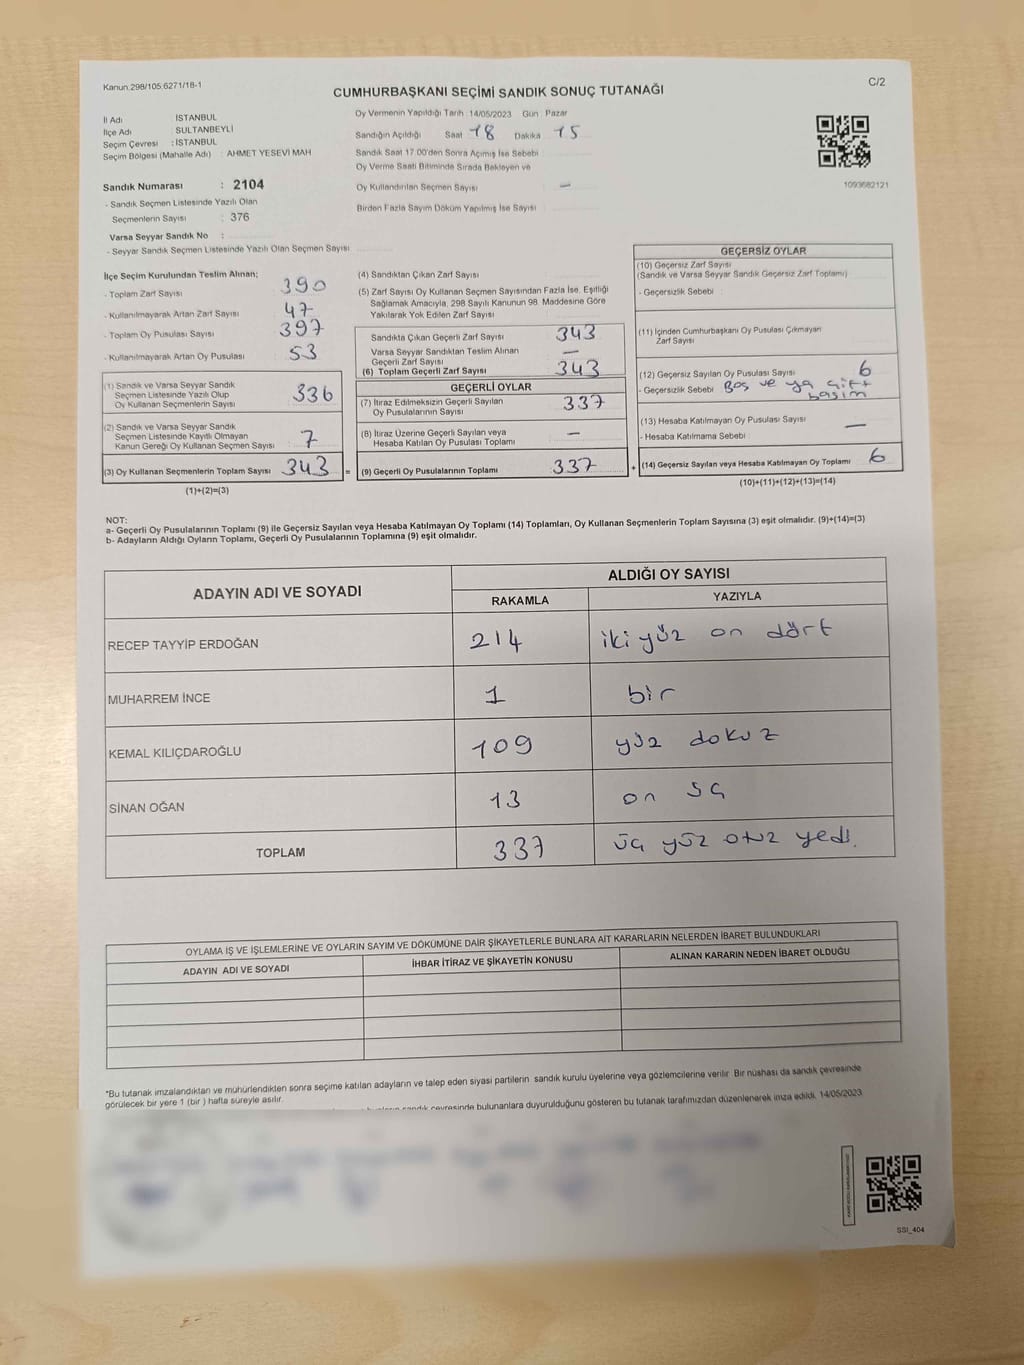 Kanun:298/105,6271/18-1
CUMHURBAŞKANI SEÇİMİ SANDIK SONUÇ TUTANAĞI
C/2
İl Adı : İSTANBUL
İlçe Adı : SULTANBEYLİ
Seçim Çevresi : İSTANBUL
Seçim Bölgesi (Mahalle Adı) : AHMET YESEVİ MAH
Sandık Numarası : 2104
- Sandık Seçmen Listesinde Yazılı Olan
Seçmenlerin Sayısı : 376
Varsa Seyyar Sandık No :
- Seyyar Sandık Seçmen Listesinde Yazılı Olan Seçmen Sayısı
Oy Vermenin Yapıldığı Tarih 14/05/2023 Gün Pazar
Sandığın Açıldığı Saat 18 Dakika 15
Sandık Saat 17:00'den Sonra Açımış İse Sebebi
Oy Verme Saati Bitiminde Sırada Bekleyen ve
Oy Kullandırılan Seçmen Sayısı : –
Birden Fazla Sayım Döküm Yapılmış İse Sayısı
1093682121
İlçe Seçim Kurulundan Teslim Alınan;
- Toplam Zarf Sayısı 390
- Kullanılmayarak Artan Zarf Sayısı 47
- Toplam Oy Pusulası Sayısı 397
- Kullanılmayarak Artan Oy Pusulası 53
(1) Sandık ve Varsa Seyyar Sandık
Seçmen Listesinde Yazılı Olup
Oy Kullanan Seçmenlerin Sayısı 336
(2) Sandık ve Varsa Seyyar Sandık
Seçmen Listesinde Kayıtlı Olmayan
Kanun Gereği Oy Kullanan Seçmen Sayısı 7
(3) Oy Kullanan Seçmenlerin Toplam Sayısı 343
(1)+(2)=(3)
(4) Sandıktan Çıkan Zarf Sayısı
(5) Zarf Sayısı Oy Kullanan Seçmen Sayısından Fazla İse, Eşitliği
Sağlamak Amacıyla, 298 Sayılı Kanunun 98. Maddesine Göre
Yakılarak Yok Edilen Zarf Sayısı
Sandıkta Çıkan Geçerli Zarf Sayısı 343
Varsa Seyyar Sandıktan Teslim Alınan
Geçerli Zarf Sayısı –
(6) Toplam Geçerli Zarf Sayısı 343
GEÇERLİ OYLAR
(7) İtiraz Edilmeksizin Geçerli Sayılan
Oy Pusulalarının Sayısı 337
(8) İtiraz Üzerine Geçerli Sayılan veya
Hesaba Katılan Oy Pusulası Toplamı –
= (9) Geçerli Oy Pusulalarının Toplamı 337
GEÇERSİZ OYLAR
(10) Geçersiz Zarf Sayısı
(Sandık ve Varsa Seyyar Sandık Geçersiz Zarf Toplamı)
- Geçersizlik Sebebi :
(11) İçinden Cumhurbaşkanı Oy Pusulası Çıkmayan
Zarf Sayısı
(12) Geçersiz Sayılan Oy Pusulası Sayısı 6
- Geçersizlik Sebebi : Boş ve ya çift
basım
(13) Hesaba Katılmayan Oy Pusulası Sayısı –
- Hesaba Katılmama Sebebi :
+ (14) Geçersiz Sayılan veya Hesaba Katılmayan Oy Toplamı 6
(10)+(11)+(12)+(13)=(14)
NOT:
a- Geçerli Oy Pusulalarının Toplamı (9) ile Geçersiz Sayılan veya Hesaba Katılmayan Oy Toplamı (14) Toplamları, Oy Kullanan Seçmenlerin Toplam Sayısına (3) eşit olmalıdır. (9)+(14)=(3)
b- Adayların Aldığı Oyların Toplamı, Geçerli Oy Pusulalarının Toplamına (9) eşit olmalıdır.
ADAYIN ADI VE SOYADI
ALDIĞI OY SAYISI
RAKAMLA YAZIYLA
RECEP TAYYİP ERDOĞAN 214 iki yüz on dört
MUHARREM İNCE 1 bir
KEMAL KILIÇDAROĞLU 109 yüz dokuz
SİNAN OĞAN 13 on üç
TOPLAM 337 üç yüz otuz yedi.
OYLAMA İŞ VE İŞLEMLERİNE VE OYLARIN SAYIM VE DÖKÜMÜNE DAİR ŞİKAYETLERLE BUNLARA AİT KARARLARIN NELERDEN İBARET BULUNDUKLARI
ADAYIN ADI VE SOYADI İHBAR İTİRAZ VE ŞİKAYETİN KONUSU ALINAN KARARIN NEDEN İBARET OLDUĞU
*Bu tutanak imzalandıktan ve mühürlendikten sonra seçime katılan adayların ve talep eden siyasi partilerin sandık kurulu üyelerine veya gözlemcilerine verilir. Bir nüshası da sandık çevresinde
görülecek bir yere 1 (bir) hafta süreyle asılır.
sandık çevresinde bulunanlara duyurulduğunu gösteren bu tutanak tarafımızdan düzenlenerek imza edildi. 14/05/2023
SSI_404